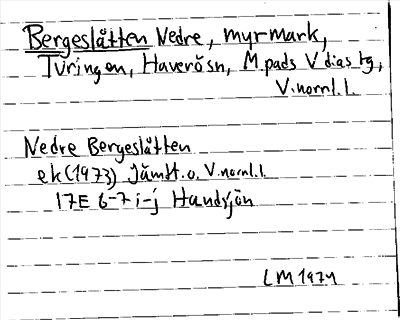 Bergeslåtten Nedre, myrmark,
Turingen, Haverösn, M.pads V dias tg,
V.nornl. l.
Nedre Bergeslåtten
ek (1973) Jämtl. o. V.nornl. l.
17E 6-7 i-j Handsjön
LM 1974